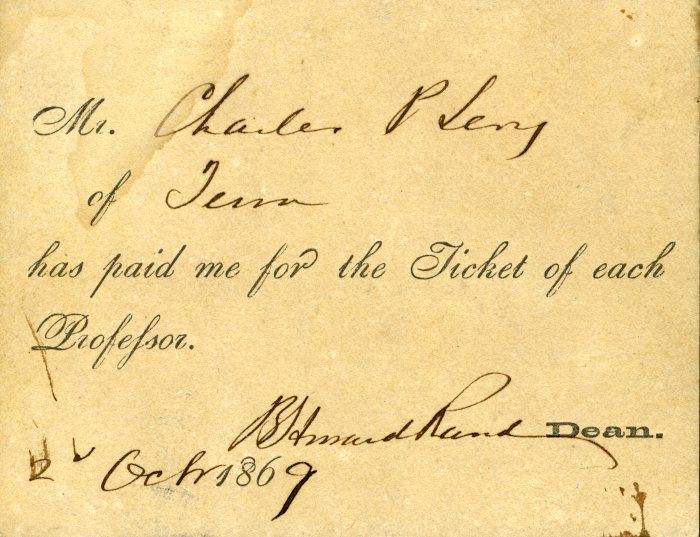 Mr. Charles P
of Tenn
has paid me for the Ticket of each
Profeſsor.
B Howard Rand Dean.
Octr 1869